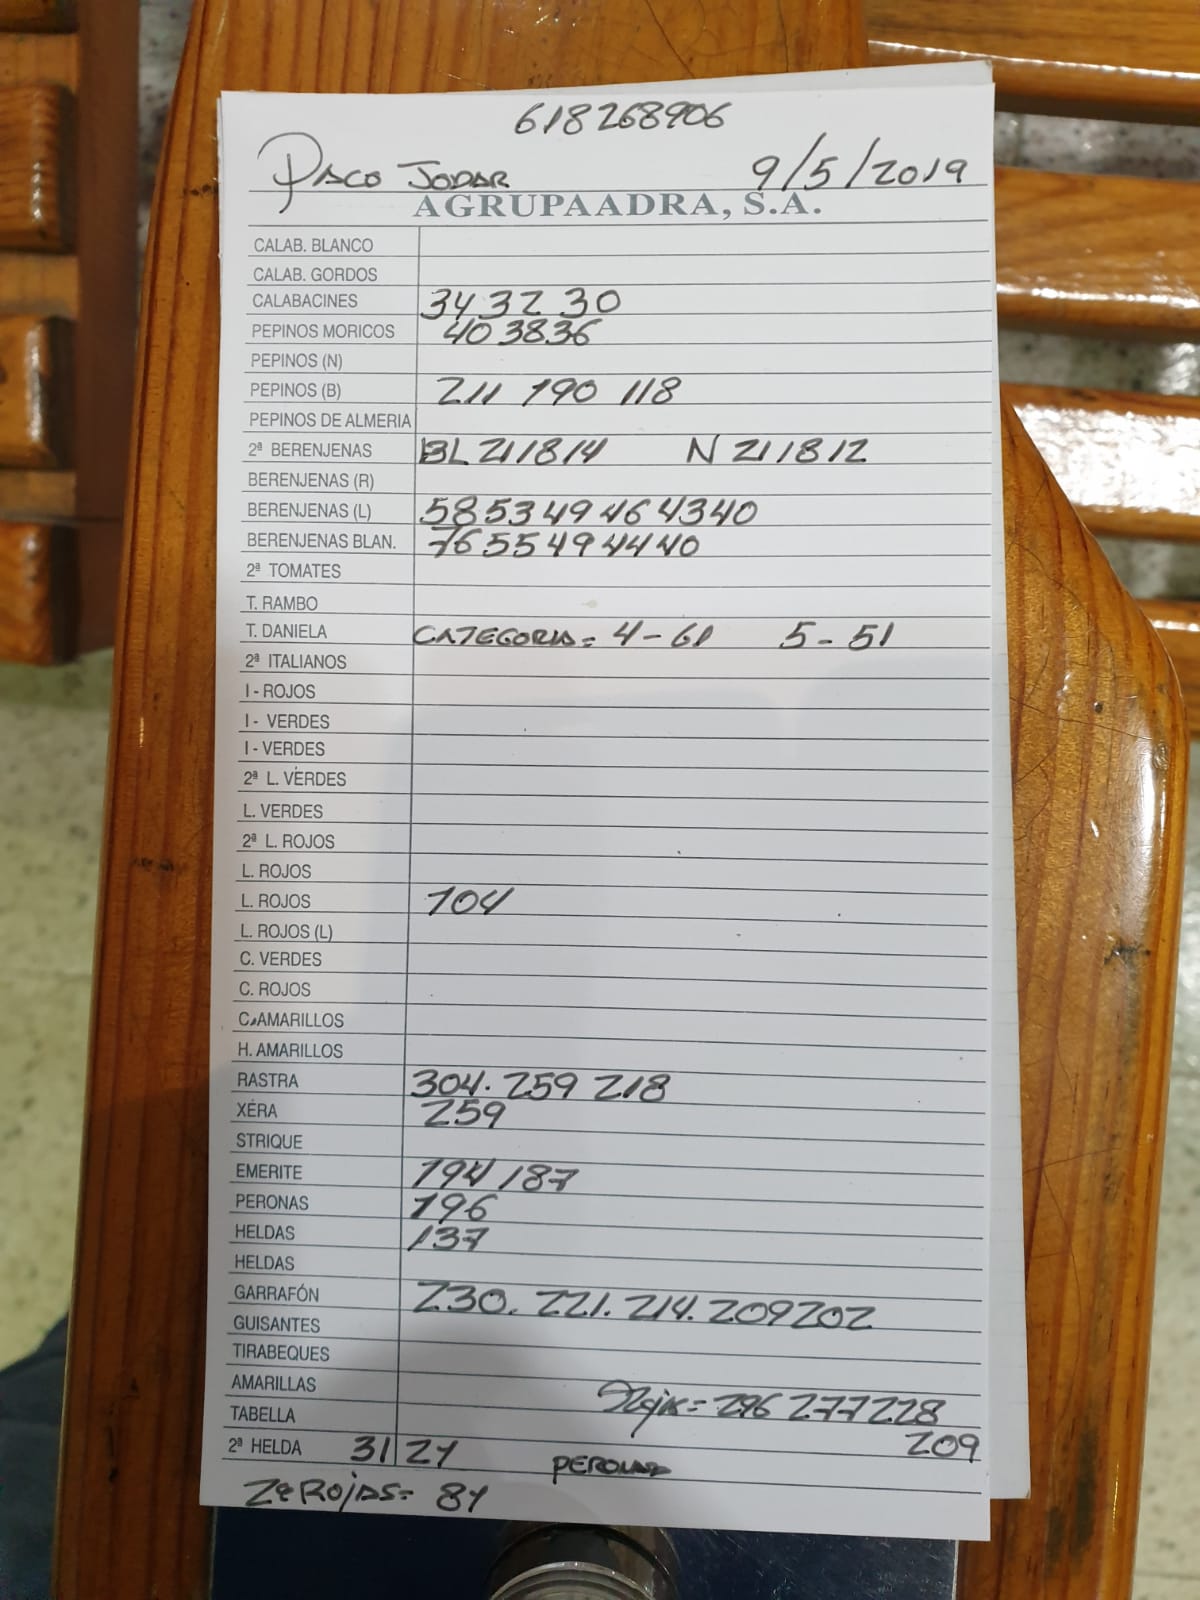 618268906
PACO JODAR 9/5/2019
AGRUPAADRA, S.A.
CALAB. BLANCO
CALAB. GORDOS
CALABACINES 34 32 30
PEPINOS MORICOS 40 38 36
PEPINOS (N)
PEPINOS (B) 211 190 118
PEPINOS DE ALMERIA
2ª BERENJENAS BL 21 18 14 N 21 18 12
BERENJENAS (R)
BERENJENAS (L) 58 53 49 46 43 40
BERENJENAS BLAN. 76 55 49 44 40
2ª TOMATES
T. RAMBO
T. DANIELA CATEGORIA = 4-61 5-51
2ª ITALIANOS
I - ROJOS
I - VERDES
I - VERDES
2ª L. VERDES
L. VERDES
2ª L. ROJOS
L. ROJOS
L. ROJOS 104
L. ROJOS (L)
C. VERDES
C. ROJOS
C. AMARILLOS
H. AMARILLOS
RASTRA 304. 259 218
XÉRA 259
STRIQUE
EMERITE 194 187
PERONAS 196
HELDAS 137
HELDAS
GARRAFÓN 230. 221. 214. 209 202
GUISANTES
TIRABEQUES
AMARILLAS Rojas = 296 277 228
TABELLA 209
2ª HELDA 31 21 PERONAS
2ª ROJAS = 81